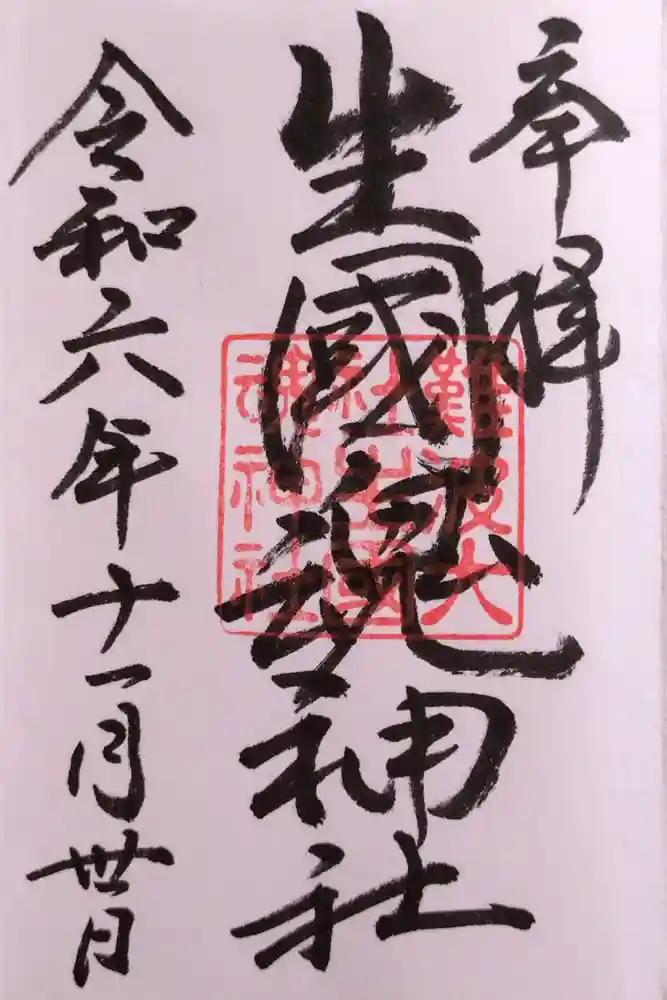 奉拝
生國魂神社
難波大社生國魂神社
令和六年十一月卅日